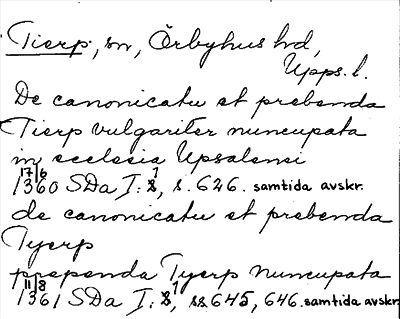 Tierp, sn, Örbyhus hd,
Upps. l.
De canonicatu et prebenda
Tierp vulgariter nuncupata
in ecclesia Upsalensi
17/6 1360 SDa I: 1, s. 646. samtida avskr.
de canonicatu et prebenda
Tyerp
prependa Tyerp nuncupata
11/8 1361 SDa I: 1, ss 645, 646. samtida avskr.